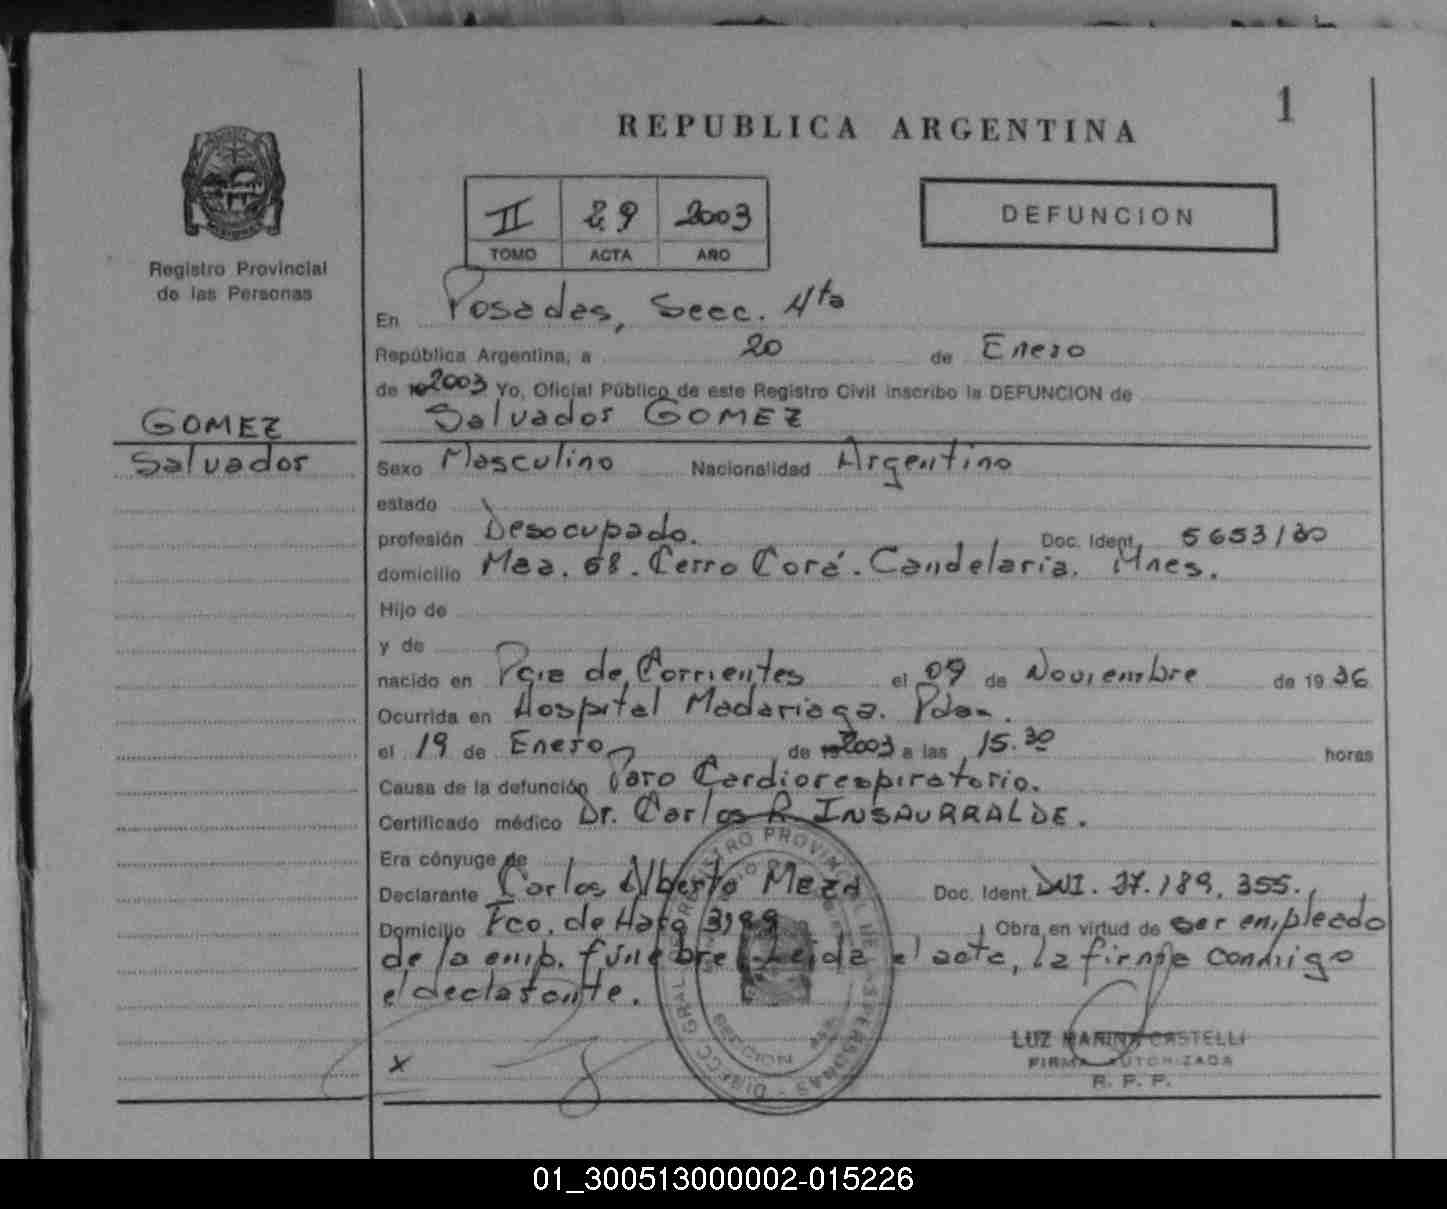 1
REPUBLICA ARGENTINA
II 29 2003
TOMO ACTA AÑO
DEFUNCION
Registro Provincial
de las Personas
GOMEZ
Salvador
En Posadas, Secc. 4ta
República Argentina, a 20 de Enero
de 2003 Yo, Oficial Público de este Registro Civil inscribo la DEFUNCION de
Salvador GOMEZ
Sexo Masculino Nacionalidad Argentino
estado
profesión Desocupado. Doc. Ident.
domicilio Mza. 68. Cerro Corá. Candelaria. Mnes.
Hijo de
y de
nacido en Pcia de Corrientes el 09 de Noviembre de 1936
Ocurrida en Hospital Madariaga. Pdas.
el 19 de Enero de 2003 a las 15.30 horas
Causa de la defunción Paro Cardiorespiratorio.
Certificado médico Dr. Carlos R. INSAURRALDE.
Era cónyuge de
Declarante Carlos Alberto Meza Doc. Ident. DNI. 27.189.355.
Domicilio Fco. de Haro Obra en virtud de ser empleado
de la emp. fúnebre. Leida el acta, la firma conmigo
el declarante.
x
LUZ MARINA CASTELLI
FIRMA AUTORIZADA
R. P. P.
DIRECC GRAL REGISTRO PROVINCIAL DE LAS PERSONAS
01_300513000002-015226